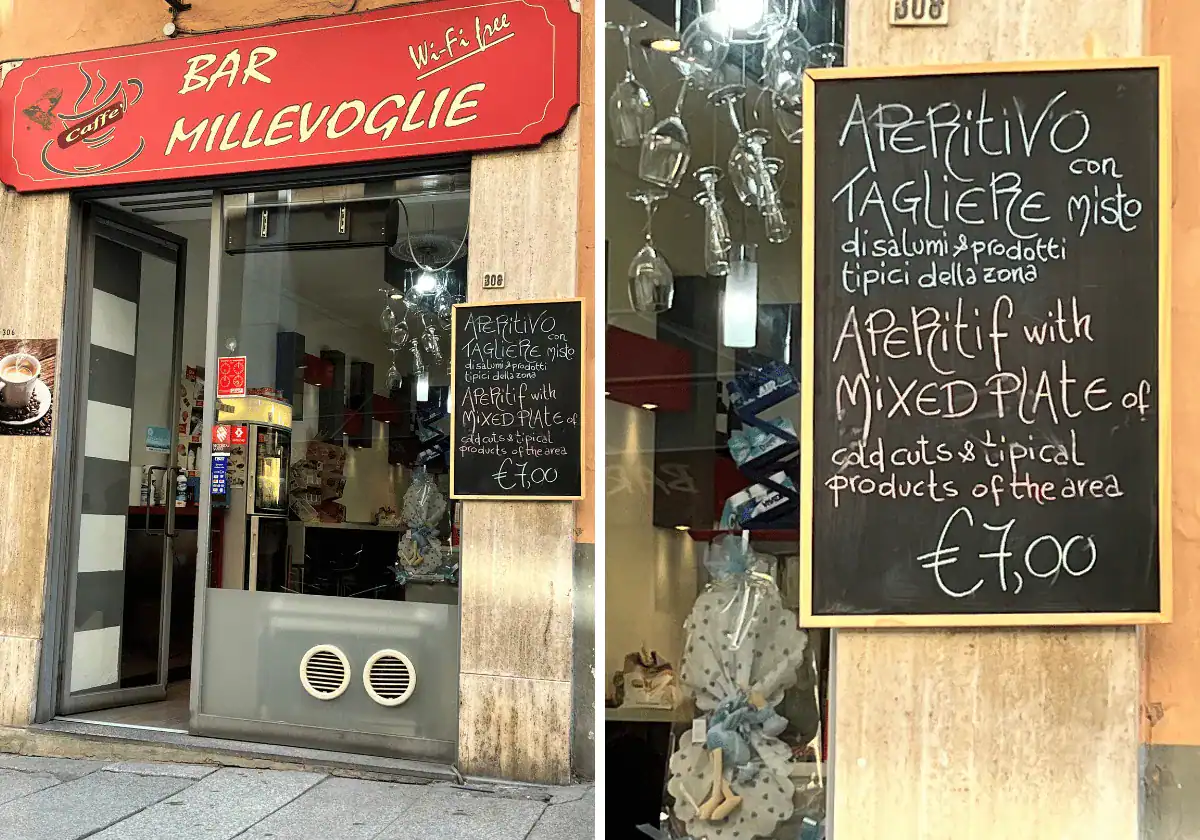 BAR
MILLEVOGLIE
Wi-Fi free
Caffè
306
308
APERITIVO
con
TAGLIERE misto
di salumi & prodotti
tipici della zona
APERITIF with
MIXED PLATE of
cold cuts & tipical
products of the area
€7,00
308
APERITIVO
con
TAGLIERE misto
di salumi & prodotti
tipici della zona
APERITIF with
MIXED PLATE of
cold cuts & tipical
products of the area
€7,00
AIR